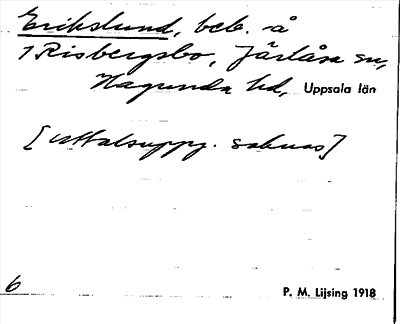 Erikslund, beb. å
1 Risbergsbo, Järlåsa sn,
Hagunda hd, Uppsala län
[Uttalsuppg. saknas]
6
P. M. Lijsing 1918